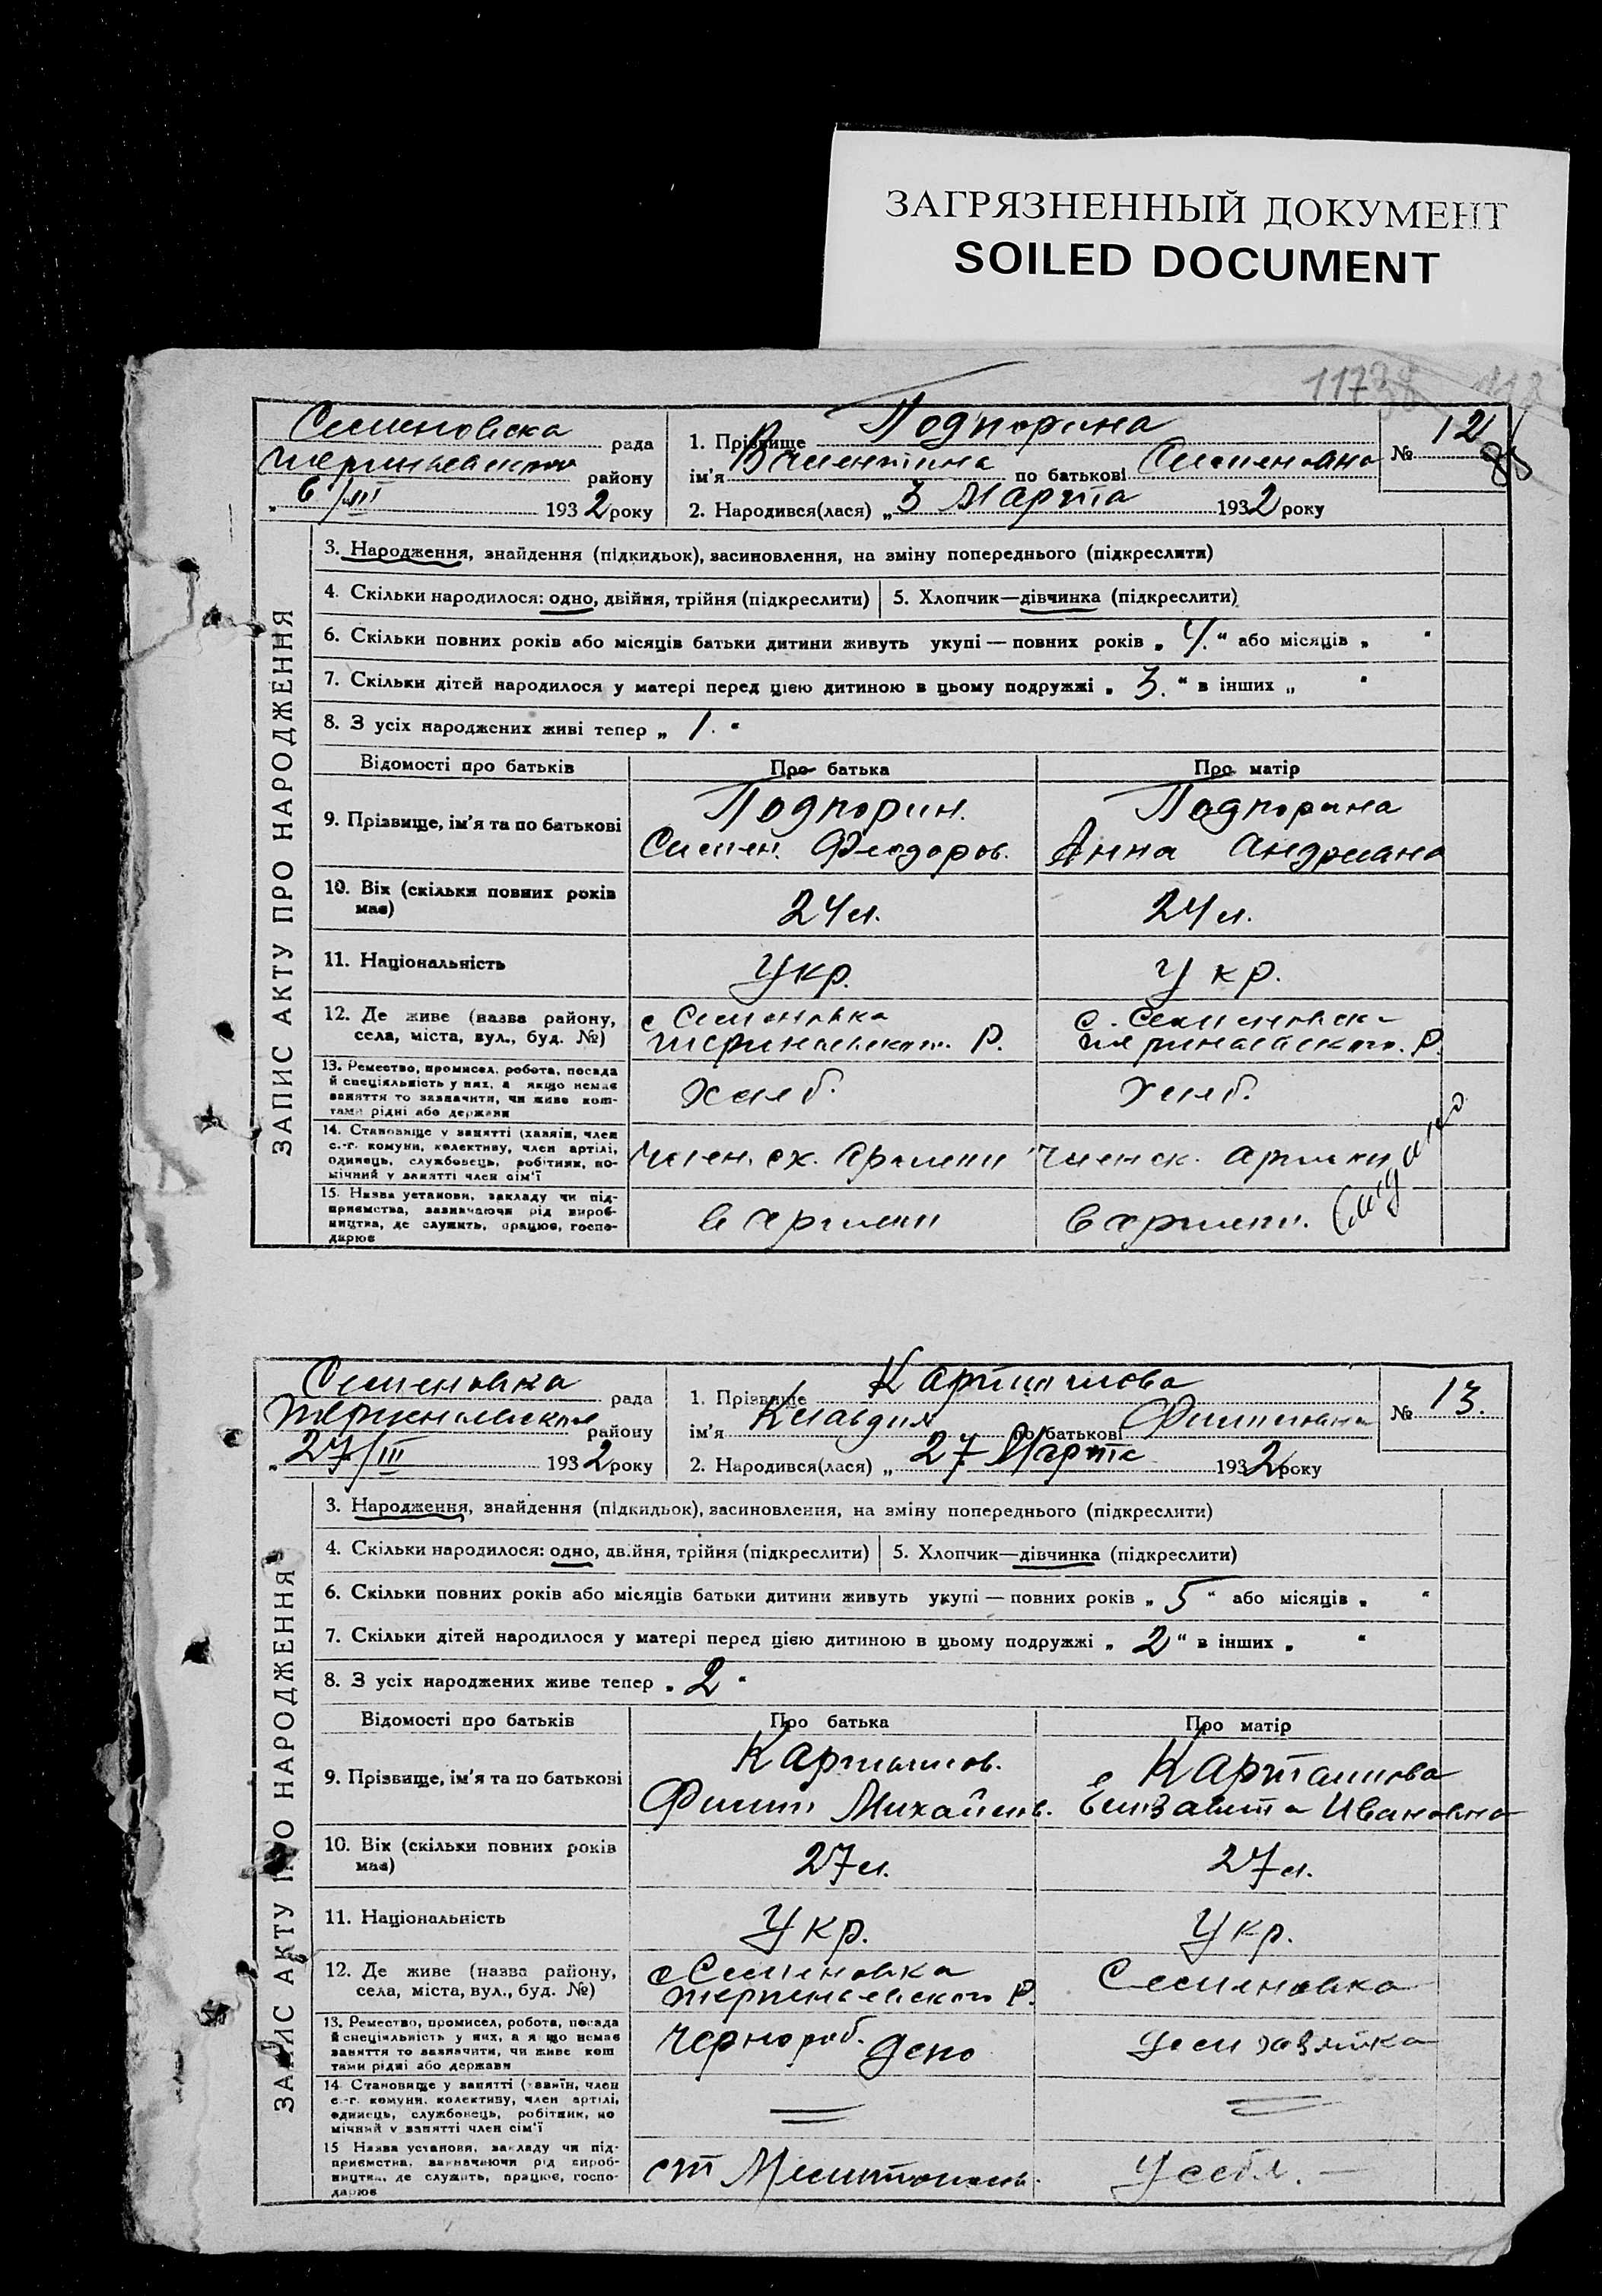 ЗАГРЯЗНЕННЫЙ ДОКУМЕНТ
SOILED DOCUMENT
11738
Семеновска рада
району
"6/III 1932 року
1. Прізвище Подпорина
ім'я Валентина по батькові Семеновна
2. Народився(лася) „3 Марта 1932 року
№ 12
ЗАПИС АКТУ ПРО НАРОДЖЕННЯ
3. Народження, знайдення (підкидьок), засиновлення, на зміну попереднього (підкреслити)
4. Скільки народилося: одно, двійня, трійня (підкреслити) 5. Хлопчик—дівчинка (підкреслити)
6. Скільки повних років або місяців батьки дитини живуть укупі — повних років „ 4. " або місяців „ "
7. Скільки дітей народилося у матері перед цією дитиною в цьому подружжі „ 3. " в інших „ "
8. З усіх народжених живі тепер „ 1. "
Відомості про батьків Про батька Про матір
9. Прізвище, ім'я та по батькові
Подпорин. Семен. Феодоров.
Подпорина Анна Андреевна
10. Вік (скільки повних років має) 24 л. 24 л.
11. Національність Укр. Укр.
12. Де живе (назва району, села, міста, вул., буд. №)
с Семеновка Р.
с. Семеновск Р.
13. Ремество, промисел, робота, посада й спеціяльність у них, а якщо немає заняття то зазначити, чи живе коштами рідні або держави
Хлеб. Хлеб.
14. Становище у занятті (хазяїн, член с.-г. комуни, колективу, член артілі, одинець, службовець, робітник, помічний у занятті член сім'ї
член. сх. артели член ск. артели
15. Назва установи, закладу чи підприємства, зазначаючи рід виробництва, де служить, працює, господарює
в артели в артели.
Семеновка рада
району
"27/III 1932 року
1. Прізвище Карташова
ім'я Клавдия по батькові Филиповна
2. Народився(лася) „ 27 Марта 1932 року
№ 13.
ЗАПИС АКТУ ПРО НАРОДЖЕННЯ
3. Народження, знайдення (підкидьок), засиновлення, на зміну попереднього (підкреслити)
4. Скільки народилося: одно, двійня, трійня (підкреслити) 5. Хлопчик—дівчинка (підкреслити)
6. Скільки повних років або місяців батьки дитини живуть укупі — повних років „ 5 " або місяців „ "
7. Скільки дітей народилося у матері перед цією дитиною в цьому подружжі „ 2 " в інших „ "
8. З усіх народжених живе тепер „ 2 "
Відомості про батьків Про батька Про матір
9. Прізвище, ім'я та по батькові
Карташов. Филип Михайлов.
Карташова Елизавета Ивановна
10. Вік (скільки повних років має) 27 л. 27 л.
11. Національність Укр. Укр.
12. Де живе (назва району, села, міста, вул., буд. №)
с Семеновка Р.
Семеновка
13. Ремество, промисел, робота, посада й спеціяльність у них, а якщо немає заняття то зазначити, чи живе коштами рідні або держави
чернораб. депо
14 Становище у занятті (хазяїн, член с.-г. комуни, колективу, член артілі, одинець, службовець, робітник, помічний у занятті член сім'ї
15 Назва установи, закладу чи підприємства, зазначаючи рід виробництва, де служить, працює, господарює
ст Мелитополь. У себя. —